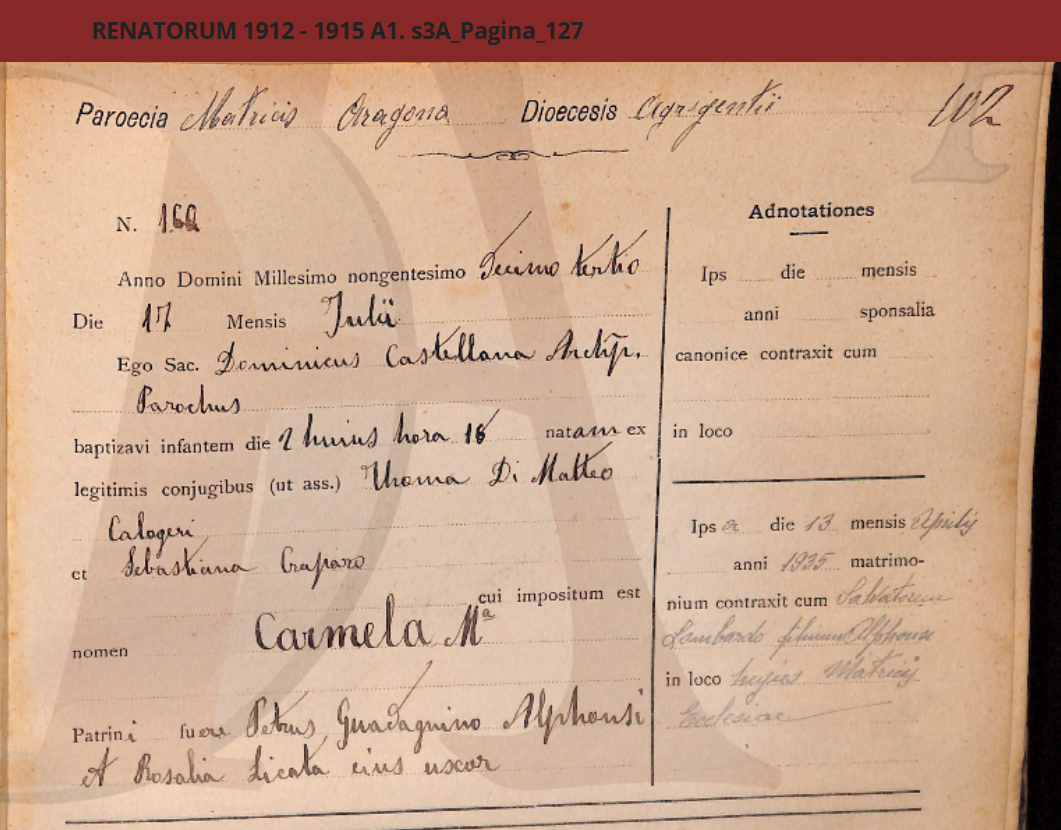 RENATORUM 1912 - 1915 A1. s3A_Pagina_127
Paroecia Matricis Aragona Dioecesis Agrigentii 102
N. 160
Anno Domini Millesimo nongentesimo Decimo tertio
Die 17 Mensis Julii
Ego Sac. Dominicus Castellana Archip.
Parochus
baptizavi infantem die 2 huius hora 16 natam ex
legitimis conjugibus (ut ass.) Thoma Di Matteo
Calogeri
et Sebastiana Craparo
cui impositum est
nomen Carmela Mª
Patrini fuere Petrus Guadagnino Alphonsi
et Rosalia Licata eius uxor
Adnotationes
Ips die mensis
anni sponsalia
canonice contraxit cum
in loco
Ipsa die 13 mensis Aprilis
anni 1935 matrimo-
nium contraxit cum Salvatorem
Lombardo filium Alphonsi
in loco hujus Matricis
Ecclesiae